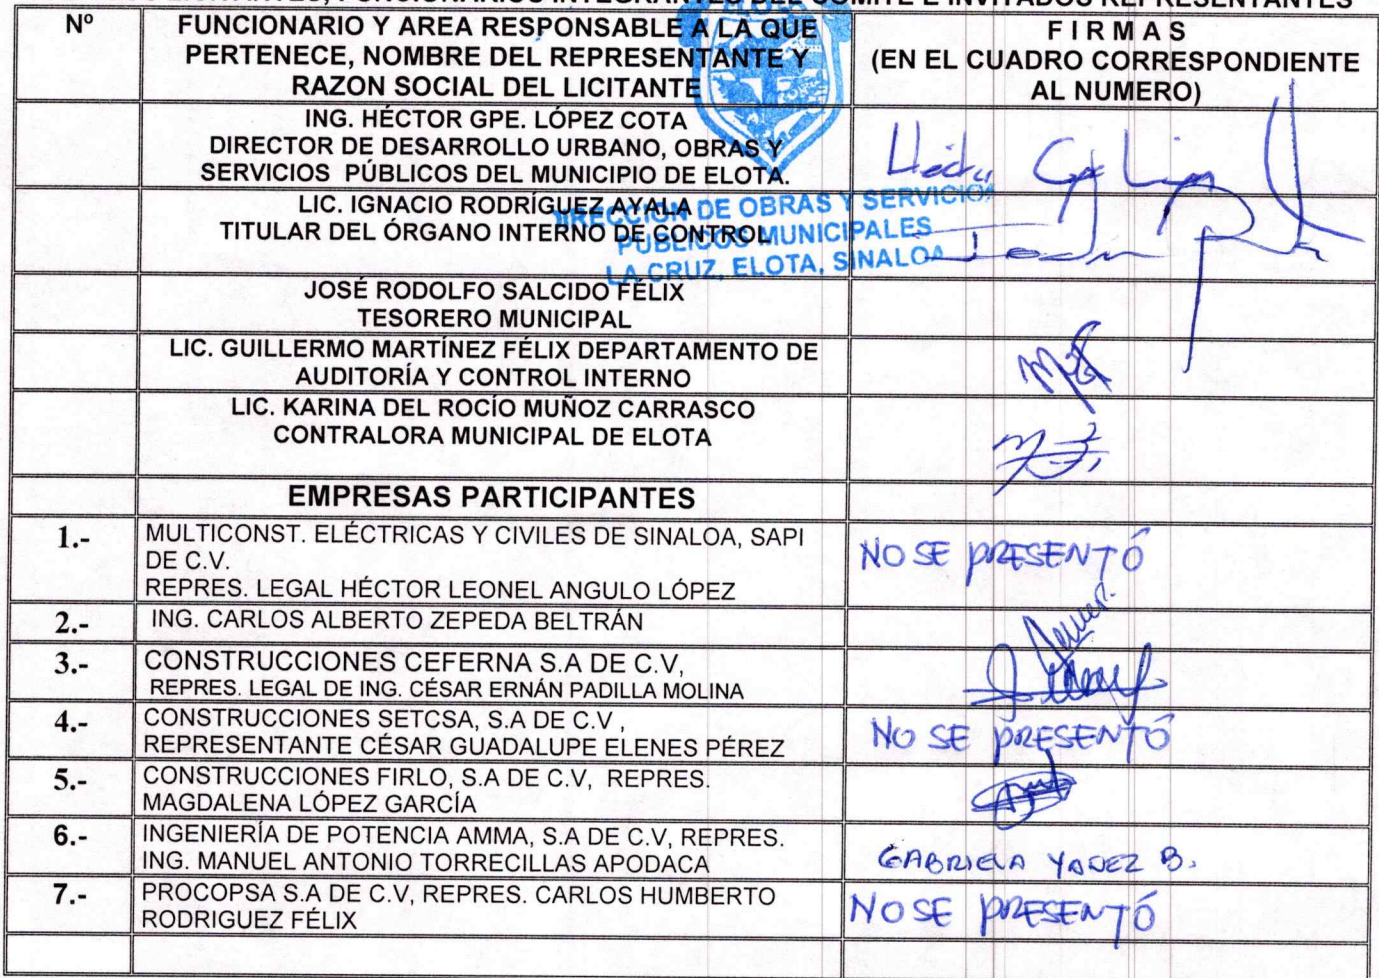 LICITANTES, FUNCIONARIOS INTEGRANTES DEL COMITÉ E INVITADOS REPRESENTANTES
Nº
FUNCIONARIO Y AREA RESPONSABLE A LA QUE
PERTENECE, NOMBRE DEL REPRESENTANTE Y
RAZON SOCIAL DEL LICITANTE
F I R M A S
(EN EL CUADRO CORRESPONDIENTE
AL NUMERO)
ING. HÉCTOR GPE. LÓPEZ COTA
DIRECTOR DE DESARROLLO URBANO, OBRAS Y
SERVICIOS PÚBLICOS DEL MUNICIPIO DE ELOTA.
LIC. IGNACIO RODRÍGUEZ AYALA
TITULAR DEL ÓRGANO INTERNO DE CONTROL
DIRECCIÓN DE OBRAS Y SERVICIOS
PÚBLICOS MUNICIPALES
LA CRUZ, ELOTA, SINALOA
JOSÉ RODOLFO SALCIDO FÉLIX
TESORERO MUNICIPAL
LIC. GUILLERMO MARTÍNEZ FÉLIX DEPARTAMENTO DE
AUDITORÍA Y CONTROL INTERNO
LIC. KARINA DEL ROCÍO MUÑOZ CARRASCO
CONTRALORA MUNICIPAL DE ELOTA
EMPRESAS PARTICIPANTES
1.-
MULTICONST. ELÉCTRICAS Y CIVILES DE SINALOA, SAPI
DE C.V.
REPRES. LEGAL HÉCTOR LEONEL ANGULO LÓPEZ
NO SE PRESENTÓ
2.-
ING. CARLOS ALBERTO ZEPEDA BELTRÁN
3.-
CONSTRUCCIONES CEFERNA S.A DE C.V,
REPRES. LEGAL DE ING. CÉSAR ERNÁN PADILLA MOLINA
4.-
CONSTRUCCIONES SETCSA, S.A DE C.V ,
REPRESENTANTE CÉSAR GUADALUPE ELENES PÉREZ
NO SE PRESENTÓ
5.-
CONSTRUCCIONES FIRLO, S.A DE C.V, REPRES.
MAGDALENA LÓPEZ GARCÍA
6.-
INGENIERÍA DE POTENCIA AMMA, S.A DE C.V, REPRES.
ING. MANUEL ANTONIO TORRECILLAS APODACA
GABRIELA YAÑEZ B.
7.-
PROCOPSA S.A DE C.V, REPRES. CARLOS HUMBERTO
RODRIGUEZ FÉLIX
NO SE PRESENTÓ